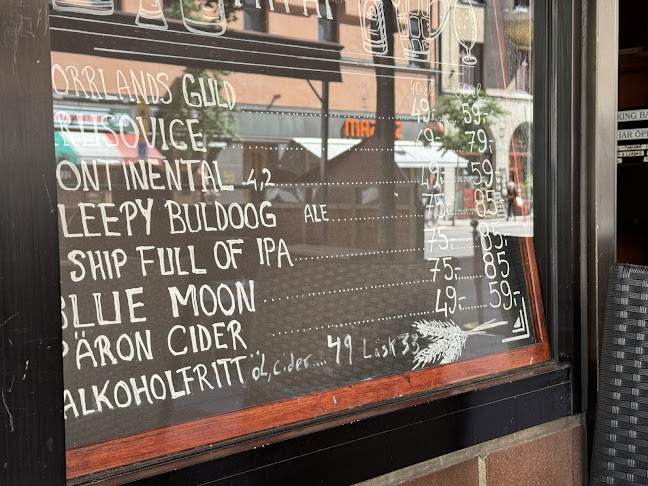 ORRLANDS GULD 49:- 59:-
RUSOVICE 79:-
ONTINENTAL 4,2 49:- 59:-
LEEPY BULDOOG ALE 75:- 85:-
SHIP FULL OF IPA 75:- 85:-
BLUE MOON 75:- 85
PÄRON CIDER 49:- 59:-
ALKOHOLFRITT öl, cider.... 49 Läsk 33
KING BA
HAR ÖPP